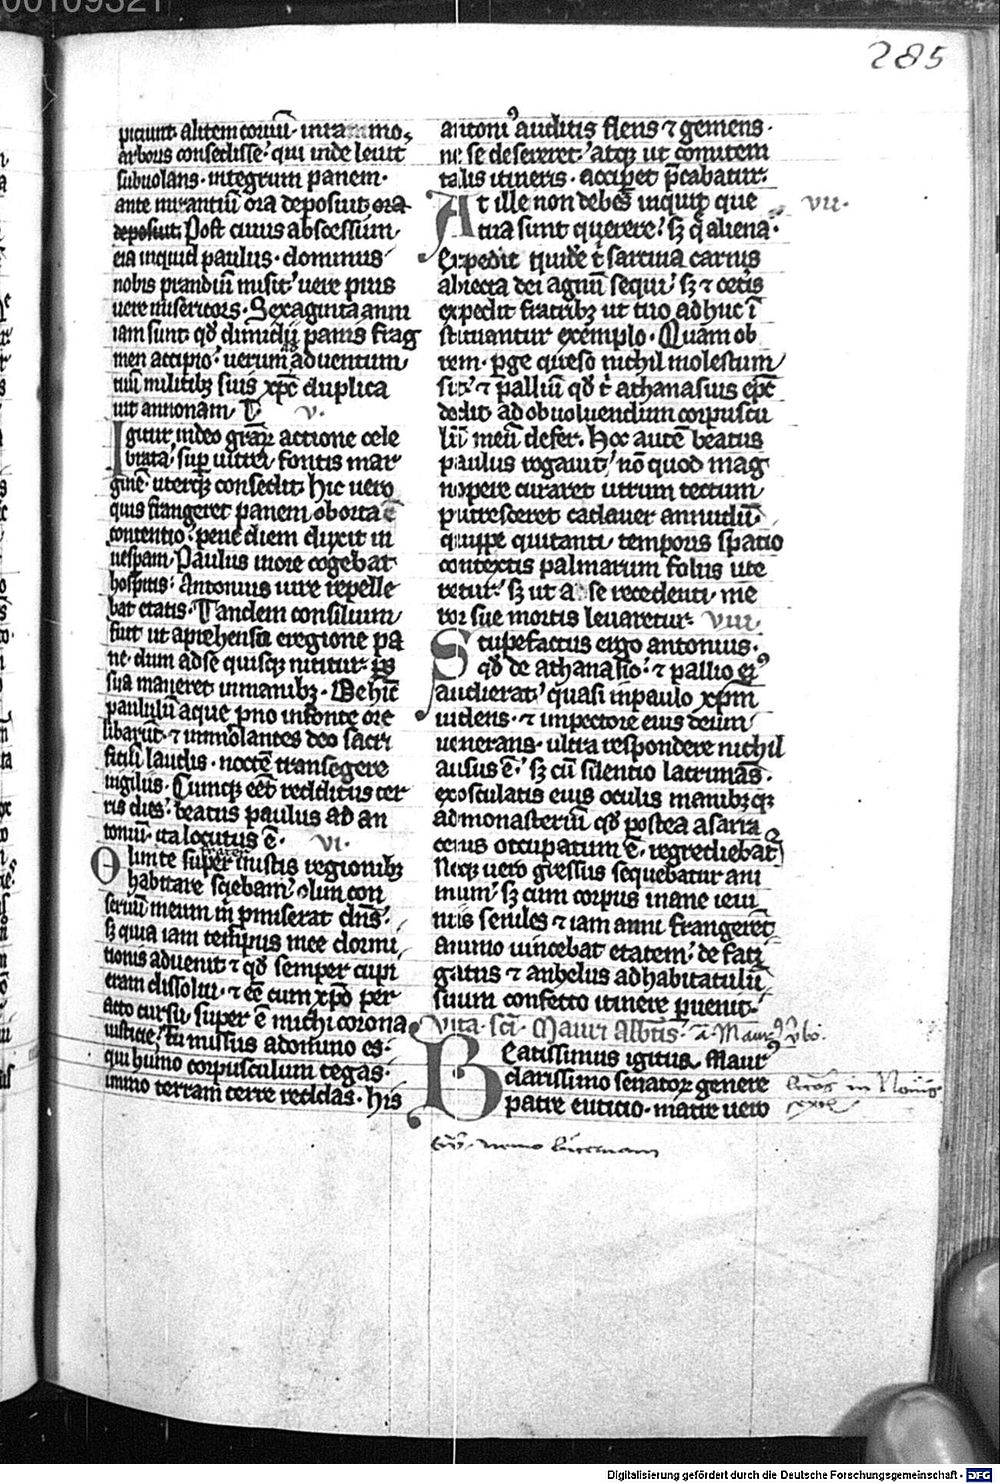 285
piciunt alitem coruū · in ramo
arboris consedisse · qui inde leuit̾
subuolans · integrum panem ·
ante mirantiū ora deposuit ora
deposuit Post cuius abscessum
eia inquid paulus · dominus
nobis prandiū misit · uere pius
uere misericors · Sexaginta anni
iam sunt · qd̄ dimidij panis frag
men accipio · uerum ad aduentum
tuū militibꝫ suis xp̄c duplica
uit annonam · v ·
Igitur in deo gr̄aꝝ actione cele
brata · suꝑ uitrei fontis mar
ginē · uterqꝫ consedit · hic uero
quis frangeret panem oborta ē
contentio · pene diem duxit in
uesꝑam · Paulus more cogebat
hospitis · Antonius iure repelle
bat etatis · Tandem consilium
fuit ut aprehenso eregione pa
ne · dum ad se quisqꝫ nititur · ꝑs
sua maneret in manibꝫ · Dehīc
paululū aque p̄no in fonte ore
libarūt · ⁊ immolantes deo sacri
ficiū laudis · noctē transegere
uigiliis · Cumqꝫ eēt redditus ter
ris dies · beatus paulus ad an
toniū · ita locutus ē · vi ·
Olim te frater in istis regionibꝫ
habitare sciebam · olim con
seruū meum m̄ ꝓmiserat dn̄s ·
sꝫ quia iam tempus mee dormi
tionis aduenit ⁊ qd̄ semper cupi
eram dissolui · ⁊ eē cum xp̄o per
acto cursu · super ē michi corona
iusticie · Tu missus a domino es ·
qui humo corpusculum tegas ·
immo terram terre reddas · his
antoniꝰ auditis flens ⁊ gemens ·
ne se desereret · atqꝫ ut comitem
talis itineris · acciꝑet p̄cabatur ·
At ille non debes inquit que vii ·
tua sunt querere · sꝫ q̄ aliena ·
Expedit quidē t̄ sarcina carnis
abiecta dei agnū sequi · sꝫ ⁊ cet̄is
expedit fratribꝫ ut tuo adhuc ī
stituantur exemplo · Quam ob
rem · ꝑge queso nichil molestum
sit · ⁊ palliū qd̄ t̄ athanasius ep̄c
dedit · ad obuoluendum corpuscu
lū meū defer · Hoc autē beatus
paulus rogauit · nō quod mag
nopere curaret utrum tectum
putresceret cadauer an nudū ·
quippe qui tanti temporis spatio
contextis palmarum foliis ute
retur · sꝫ ut a se recedenti · me
ror sue mortis leuaretur · viii ·
Stupefactus ergo antonius ·
qd̄ de athanasio · ⁊ pallio eiꝰ
audierat · quasi in paulo xp̄m
uidens · ⁊ in pectore eius deum
uenerans · ultra respondere nichil
ausus ē · sꝫ cū silentio lacrimās ·
exosculatis eius oculis manibꝫqꝫ
ad monasteriū qd̄ postea a sarra
cenis occupatum ē · regrediebat̄
Neqꝫ uero gressus sequebatur ani
mum · sꝫ cum corpus inane ieiu
niis seniles ⁊ iam anni frangerēt
Animo uincebat etatem · de fati
gatus ⁊ anhelus ad habitaculū
suum confecto itinere ꝑuenit ·
Vita · sc̄i · Mauri Abb̄tis ·
Beatissimus igitur Maurꝰ
clarissimo senatoꝝ genere
patre euticio · matre uero
Digitalisierung gefördert durch die Deutsche Forschungsgemeinschaft - DFG